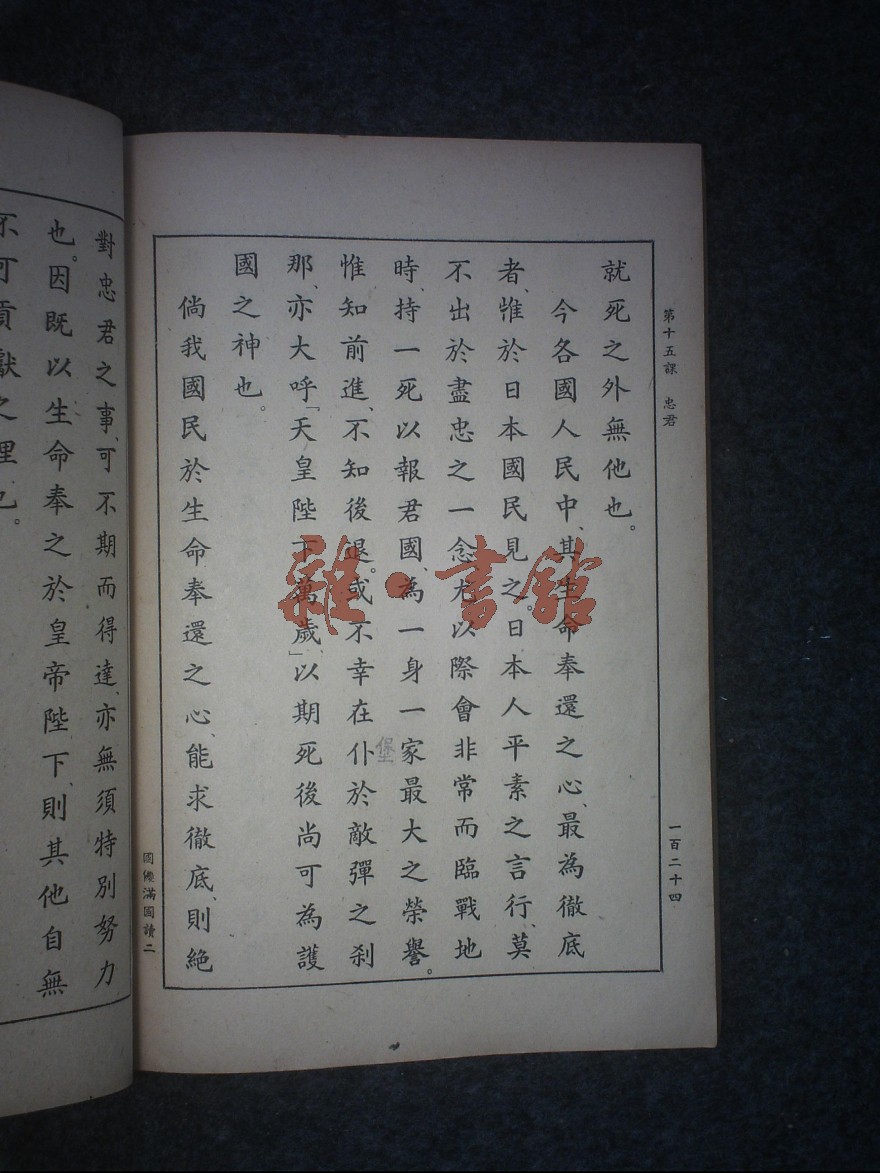 第十五課 忠君
一百二十四
就死之外無他也。
今各國人民中、其生命奉還之心、最為徹底
者、惟於日本國民見之。日本人平素之言行、莫
不出於盡忠之一念尤以際會非常而臨戰地
時、持一死以報君國、為一身一家最大之榮譽。
惟知前進、不知後退。或不幸在仆於敵彈之剎
那、亦大呼「天皇陛下萬歲」、以期死後尚可為護
國之神也。
倘我國民於生命奉還之心、能求徹底、則絕
對忠君之事、可不期而得達、亦無須特別努力
也。因既以生命奉之於皇帝陛下、則其他自無
不可貢獻之理也。
滿國讀二
雜·書館
堡